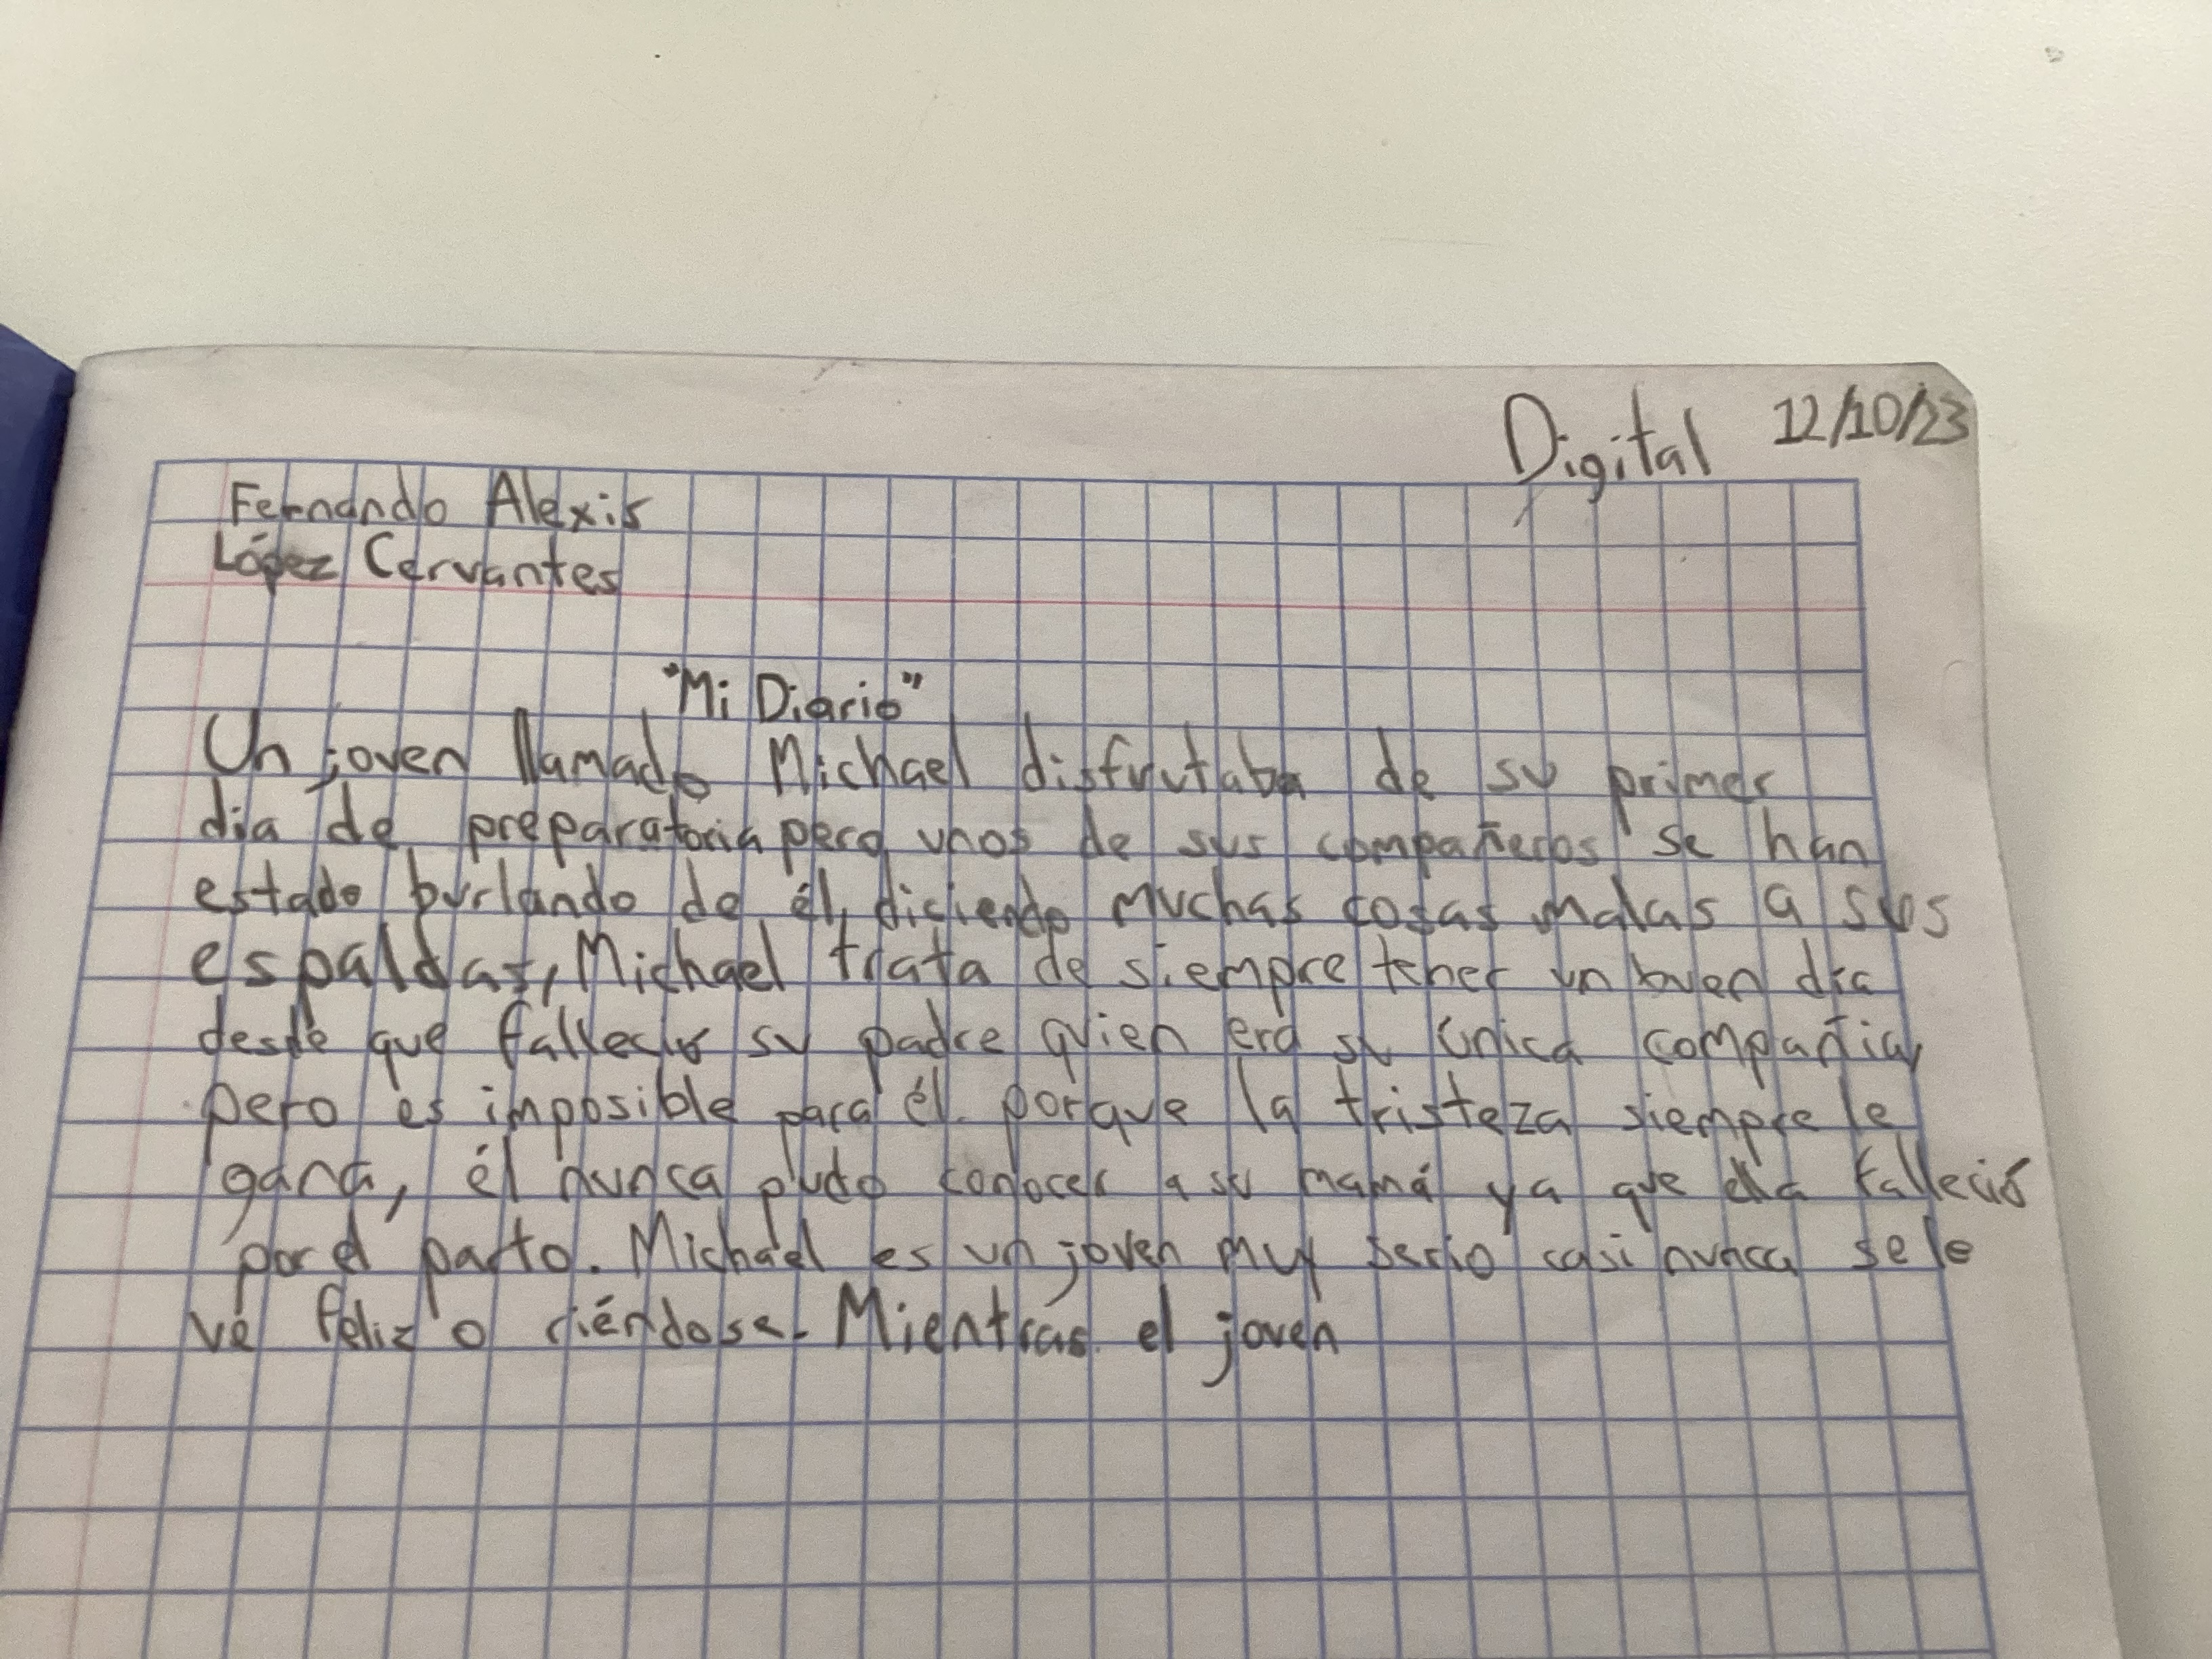 Digital 12/10/23
Fernando Alexis
López Cervantes
"Mi Diario"
Un joven llamado Michael disfrutaba de su primer
día de preparatoria pero unos de sus compañeros se han
estado burlando de él, diciendo muchas cosas malas a sus
espaldas, Michael trata de siempre tener un buen día
desde que falleció su padre quien era su única compañia,
pero es imposible para él porque la tristeza siempre le
gana, él nunca pudo conocer a su mamá ya que ella falleció
por el parto. Michael es un joven muy serio casi nunca se le
ve feliz o riéndose. Mientras el joven